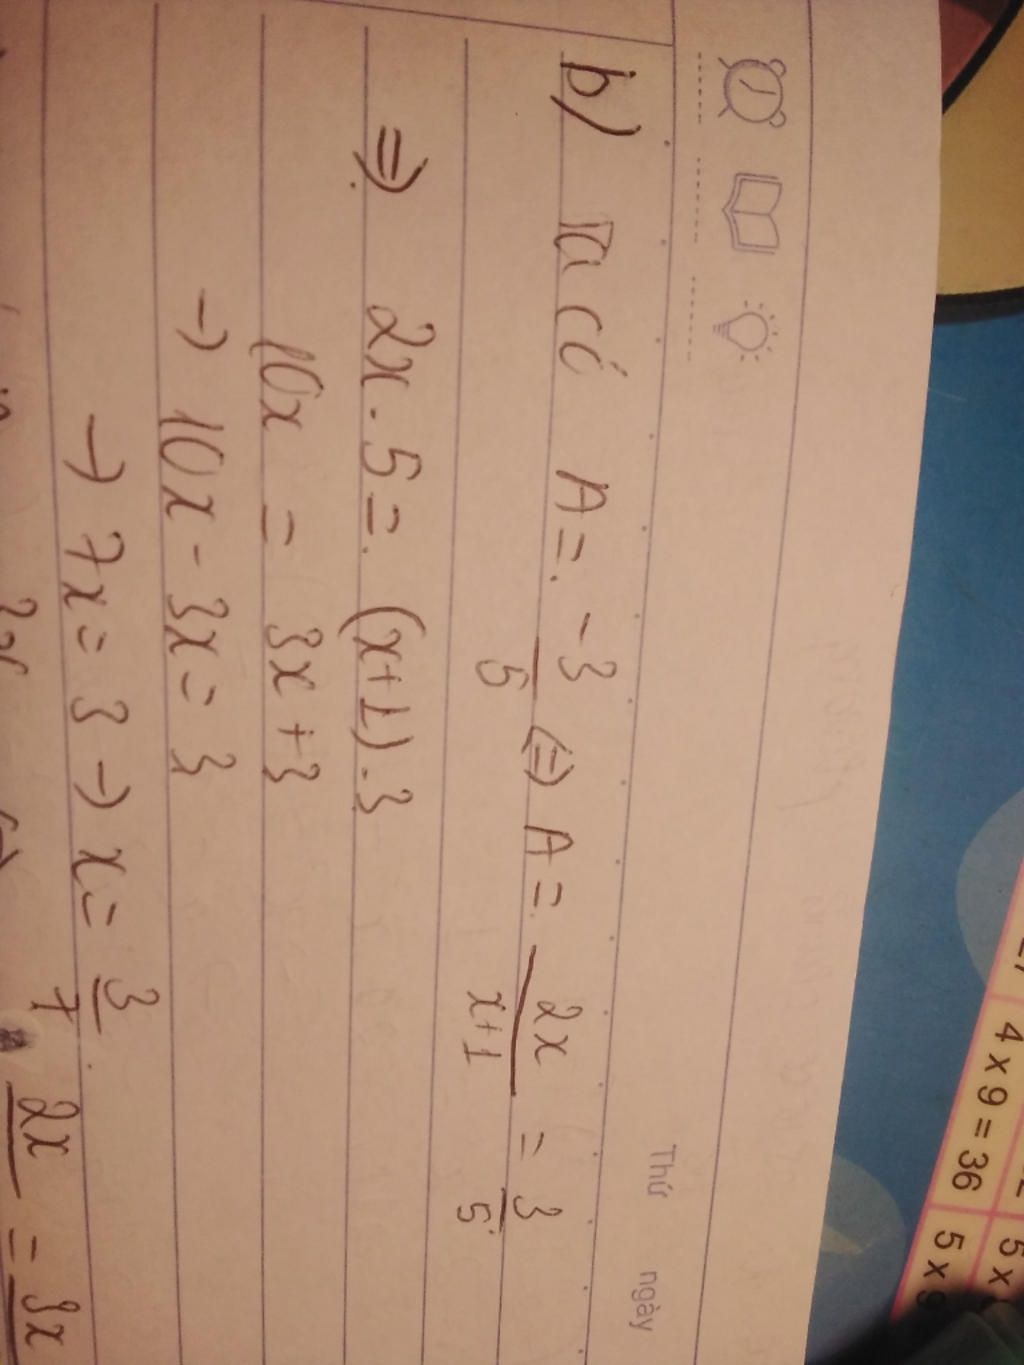 Thứ ngày
b) Ta có A = -3/5 (=) A = 2x/x+1 = 3/5
=) 2x . 5 = (x+1) . 3
10x = 3x + 3
-) 10x - 3x = 3
-) 7x = 3 -) x = 3/7
2x = 3x
4 x 9 = 36
5 x 9
5 x